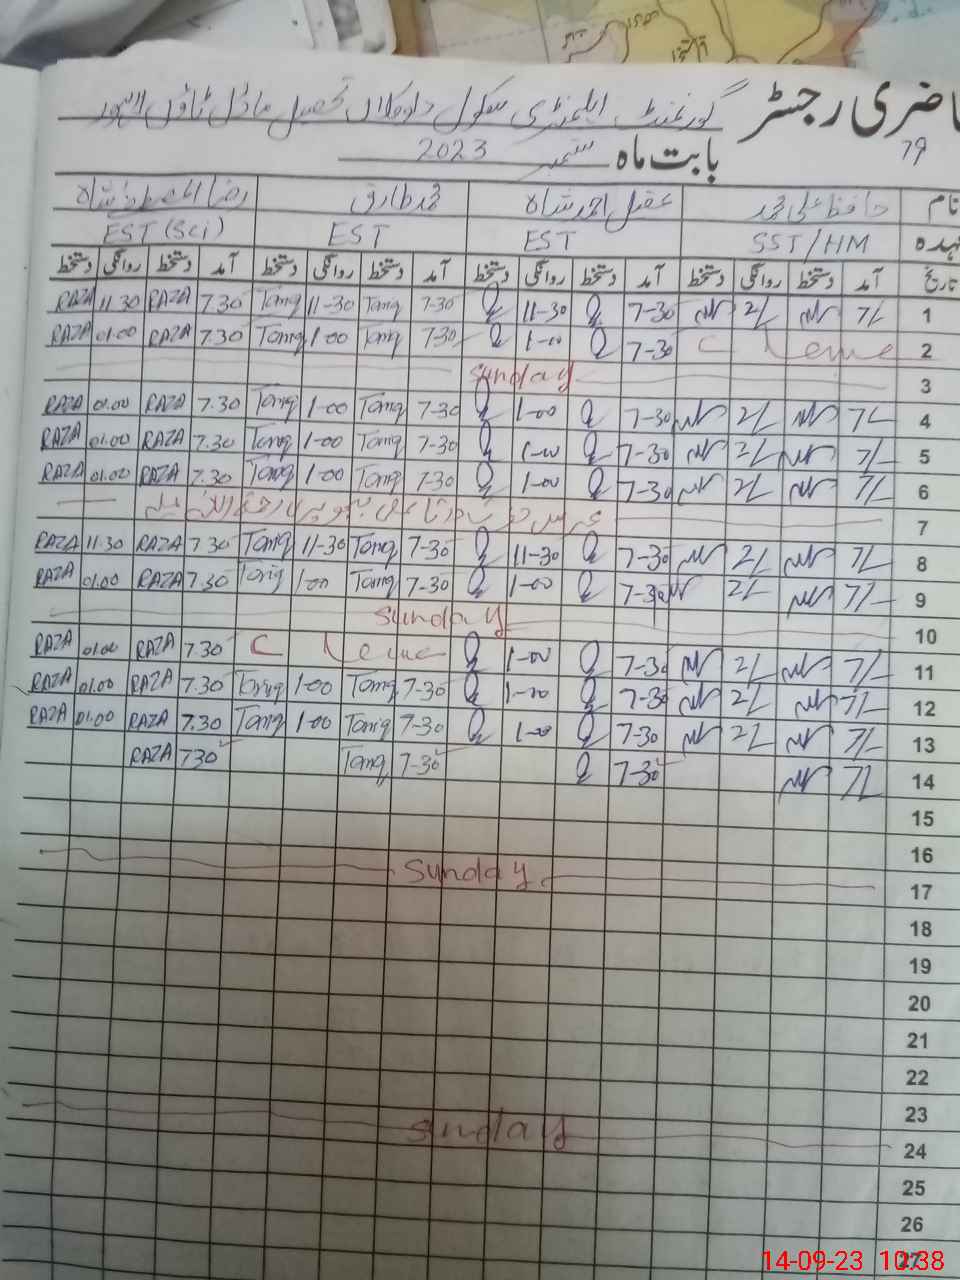 حاضری رجسٹر
گورنمنٹ ایلیمنٹری سکول دلوکلاں تحصیل ماڈل ٹاؤن لاہور
79
بابت ماہ ستمبر 2023
نام حافظ علی محمد عقیل احمد شاہ محمد طارق رضا المصطفیٰ شاہ
عہدہ SST/HM EST EST EST (Sci)
تاریخ آمد دستخط روانگی دستخط آمد دستخط روانگی دستخط آمد دستخط روانگی دستخط آمد دستخط روانگی دستخط
1 7/- 2/- 7-30 11-30 7-30 Tariq 11-30 Tariq 7.30 RAZA 11.30 RAZA
2 C Leave 7-30 1-00 7-30 Tariq 1-00 Tariq 7.30 RAZA 01.00 RAZA
3 Sunday
4 7/- 2/- 7-30 1-00 7-30 Tariq 1-00 Tariq 7.30 RAZA 01.00 RAZA
5 7/- 2/- 7-30 1-00 7-30 Tariq 1-00 Tariq 7.30 RAZA 01.00 RAZA
6 7/- 2/- 7-30 1-00 7-30 Tariq 1-00 Tariq 7.30 RAZA 01.00 RAZA
7 عرس
8 7/- 2/- 7-30 11-30 7-30 Tariq 11-30 Tariq 7.30 RAZA 11.30 RAZA
9 7/- 2/- 7-30 1-00 7-30 Tariq 1-00 Tariq 7.30 RAZA 01.00 RAZA
10 Sunday
11 7/- 2/- 7-30 1-00 C Leave 7.30 RAZA 01.00 RAZA
12 7/- 2/- 7-30 1-00 7-30 Tariq 1-00 Tariq 7.30 RAZA 01.00 RAZA
13 7/- 2/- 7-30 1-00 7-30 Tariq 1-00 Tariq 7.30 RAZA 01.00 RAZA
14 7/- 7-30 7-30 Tariq 730 RAZA
15
16
17 Sunday
18
19
20
21
22
23
24 Sunday
25
26
27
14-09-23 10:38